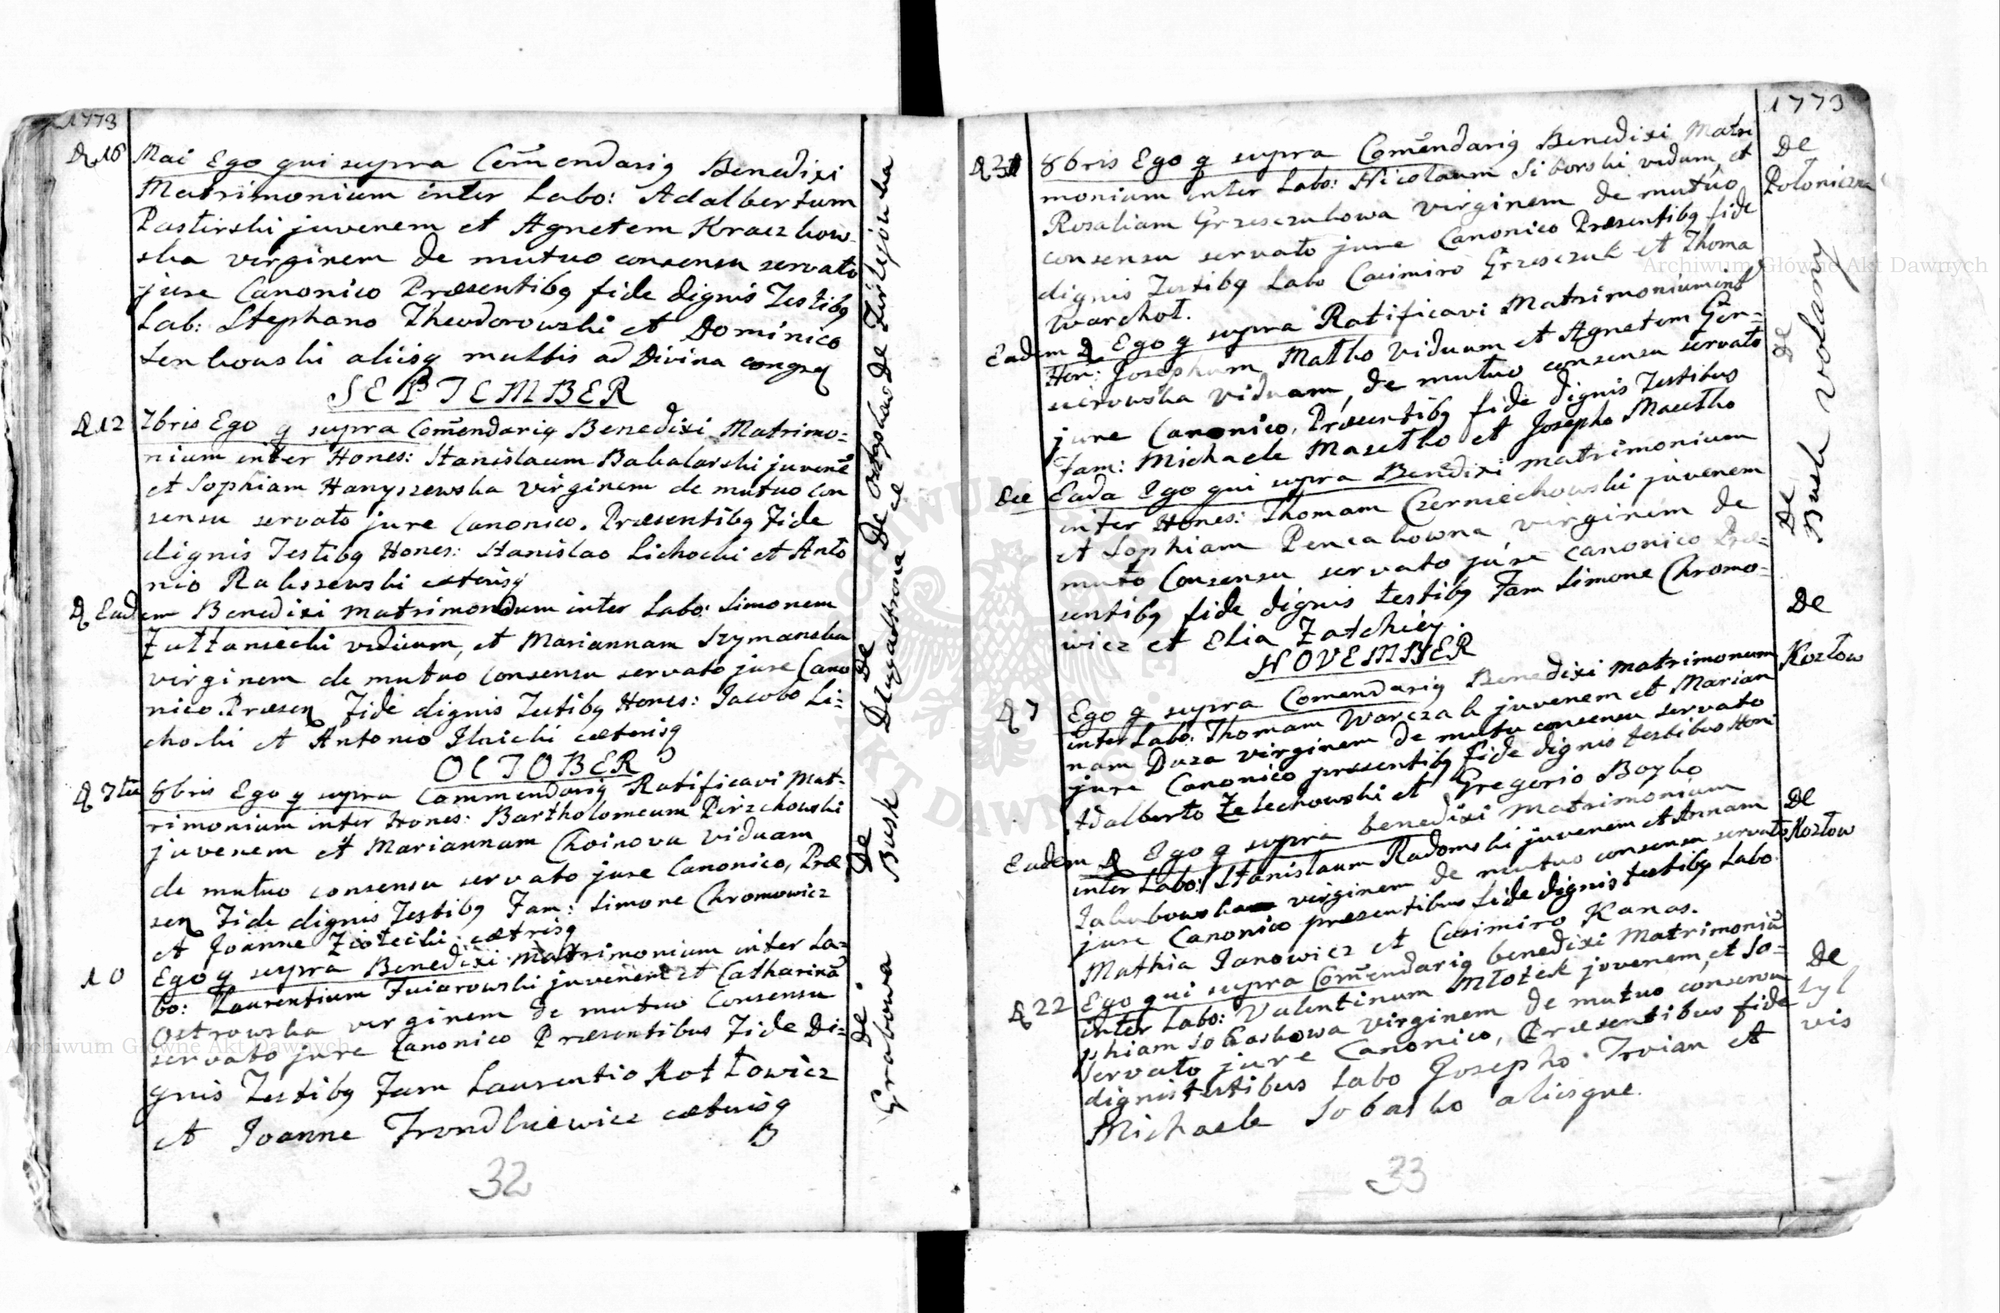 1773
D 16 Mai Ego qui supra Comendariq Benedixi
Matrimonium inter Labo: Adalbertum
Pastirski juvenem et Agnetem Kraczkow-
ska virginem de mutuo consensu servato
jure Canonico Præsentibq fide dignis Testibq
Lab: Stephano Theodorowski et Dominico
Senkowski aliisq multis ad Divina congreg
SEPTEMBER
D 12 7bris Ego q supra Comendariq Benedixi Matrimo=
nium inter Hones: Stanislaum Bakalarski juvene
et Sophiam Hanyszewska virginem de mutuo con
sensu servato jure Canonico. Præsentibq Fide
dignis Testibq Hones: Stanislao Lichocki et Anto
nio Rakszewski cæterisq
D Eadem Benedixi matrimonium inter Labo: Simonem
viduum, et Mariannam Szymanska
virginem de mutuo consensu servato jure Cano
nico. Præsen Fide dignis Testibq Hones: Jacobo Li=
chocki et Antonio Ilnicki cæterisq
OCTOBER
D 7ta 8bris Ego q supra Commendariq Ratificavi Mat-
rimonium inter Hones: Bartholomeum Pierzchowski
juvenem et Mariannam Choinova Viduam
de mutuo consensu servato jure Canonico, Præ
sen Fide dignis Testibq Fam: Simone Chromowicz
et Joanne Ziotecki cætrisq
10 Ego q supra Benedixi matrimonium inter La=
bo: Laurentium Fuiarowski juvenem et Catharina
Ostrowska virginem de mutuo Consensu
servato jure Canonico Præsentibus Fide Di=
gnis Testibq Fam Laurentio Kotłowicz
et Joanne Frondkiewicz cæterisq
32
De
Długatrona De et
De
Busk
De
Grabowa
1773
D 31 8bris Ego q supra Comendariq Benedixi Matri
monium inter Labo: Nicolaum Siborski vidum, et
Rosaliam Grzesczukowa virginem de mutuo
consensu servato jure Canonico Præsentibq fide
dignis Testibq Labo Casimiro Grzesczuk et Thoma
Warchoł.
Eadem D Ego q supra Ratificavi Matrimonium int
Hon: Josephum Matko viduum et Agnetem Gon-
sierowska viduam, de mutuo consensu servato
jure Canonico, Præsentibq fide dignis Testibus
Fam: Michaele Masetko et Josepho Masetko
Die Eada Ego qui supra Benedixi matrimonium
inter Hones: Thomam Czerniechowski juvenem
et Sophiam Pencakowna virginem de
muto Consensu servato jure canonico Præ=
sentibq fide dignis testibq Fam Simone Chromo-
wicz et Elia Zatchiey.
NOVEMBER
D 7 Ego q supra Comendariq Benedixi matrimonium
inter Labo: Thomam Warczak juvenem et Marian
nam Duza virginem de mutu consensu servato
jure Canonico præsentibq fide dignis testibus Hon
Adalberto Zelechowski et Gregorio Boyko
Eadem D Ego q supra benedixi matrimonium
inter Labo: Stanislaum Radomski juvenem et Annam
Jakubowska virginem de mutuo consensu servato
jure Canonico præsentibus fide dignis testibq Labo:
Mathia Janowicz et Casimiro Kanas.
D 22 Ego qui supra Comendariq benedixi Matrimoniu
inter Labo: Valentinum Młotek juvenem, et So-
phiam Sobaskowa virginem de mutuo consensu
servato jure Canonico, Præsentibus fide
dignis testibus Labo Josepho Troian et
Michaele Sobasko aliisque.
33
De
Połoniczna
De
De
Busk volany
De
Kozłow
De
Kozłow
De
syl
vis
Archiwum Główne Akt Dawnych
Archiwum Główne Akt Dawnych